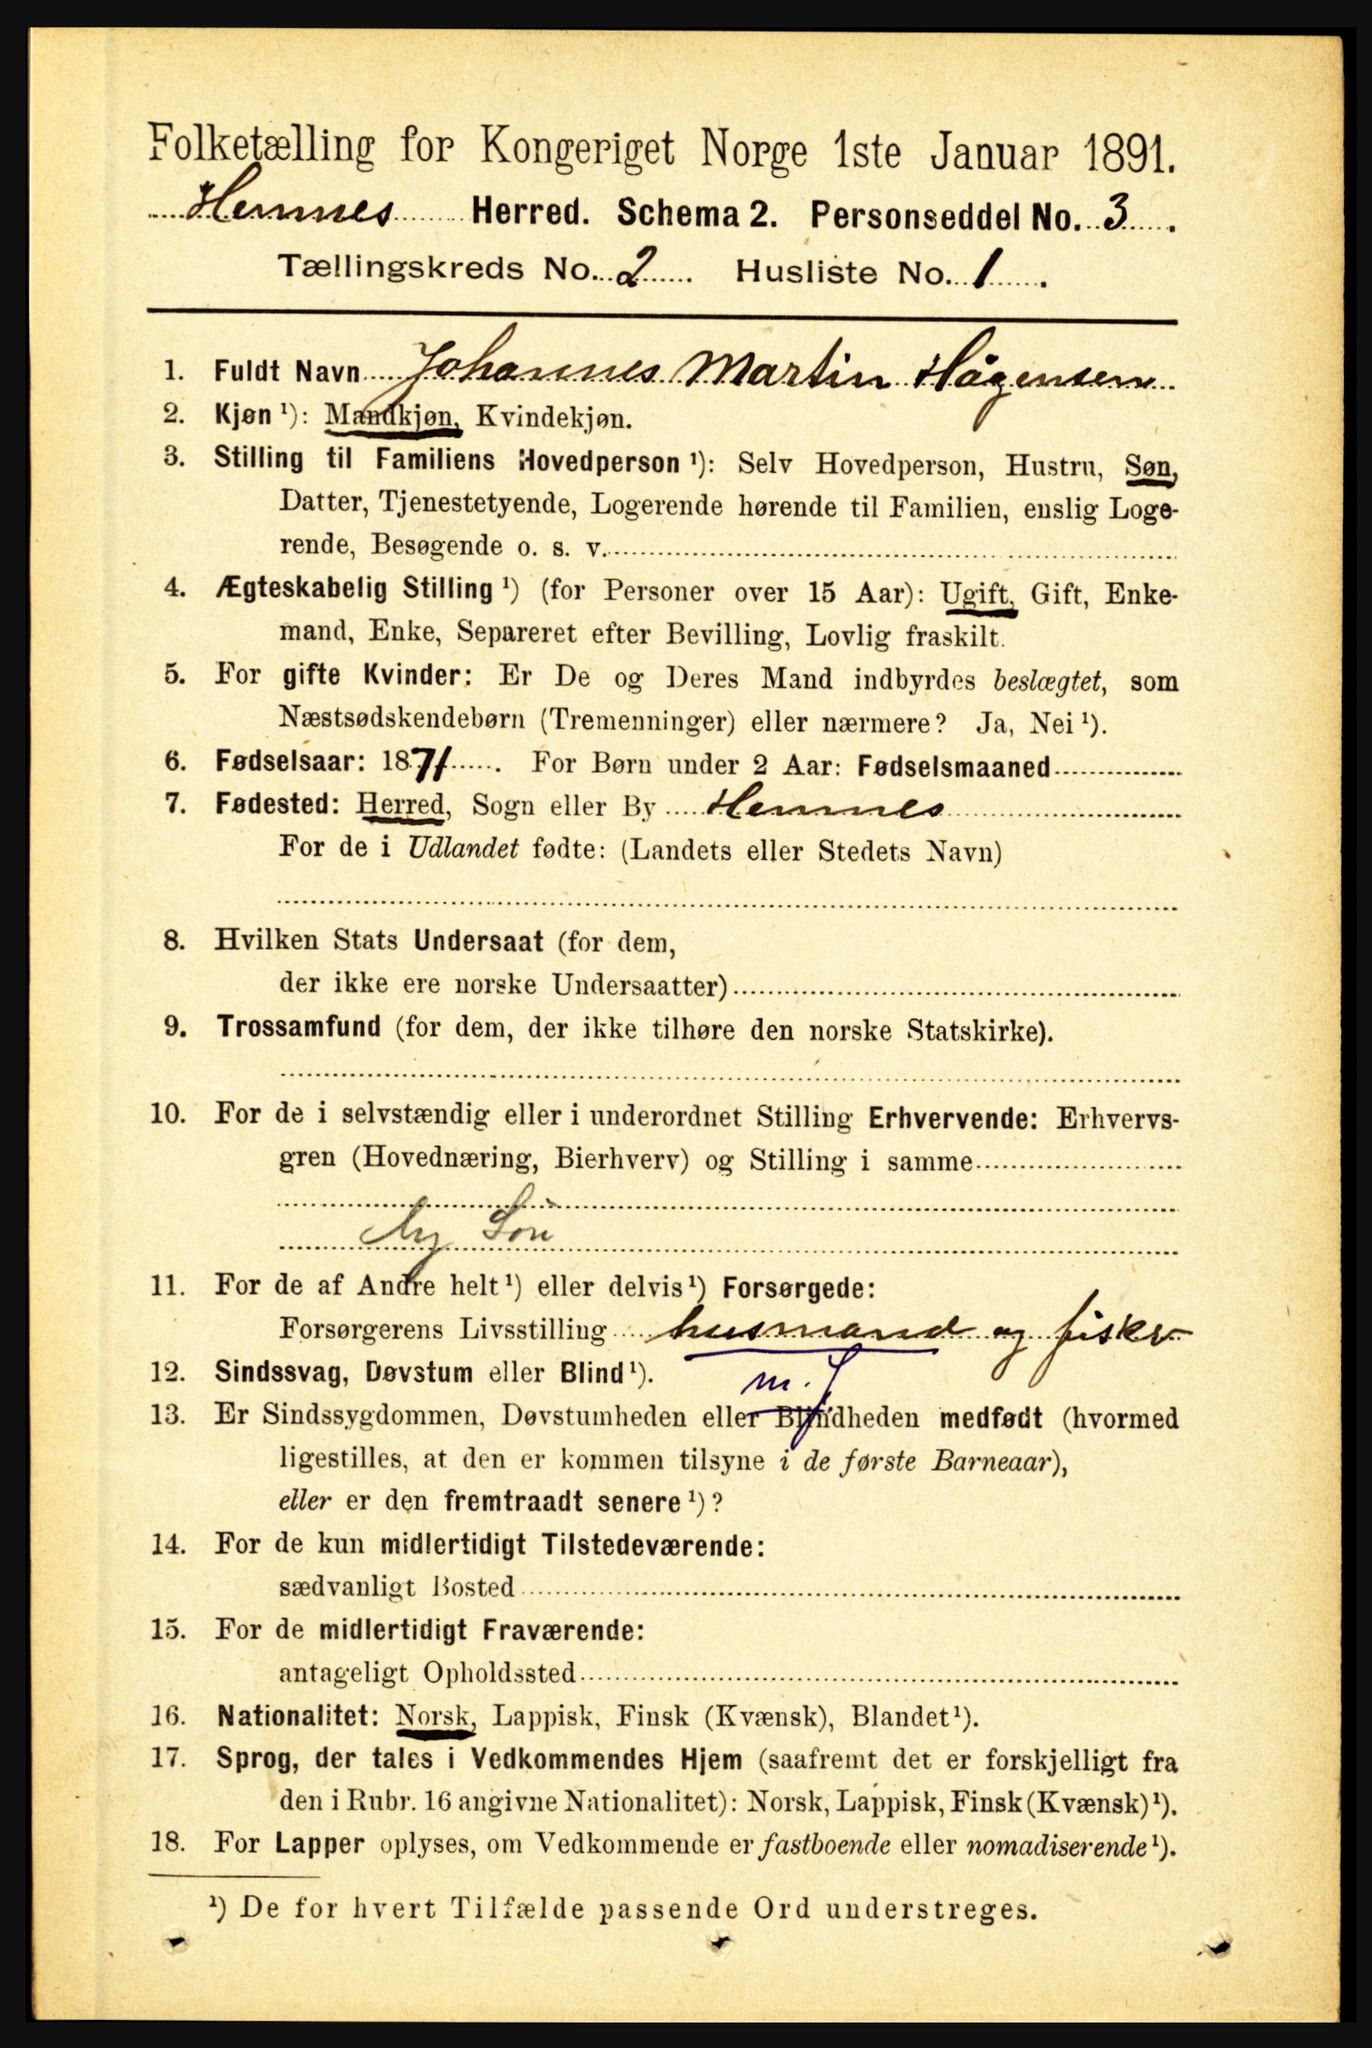 Folketælling for Kongeriget Norge 1ste Januar 1891.
Hemnes Herred. Schema 2. Personseddel No. 3.
Tællingskreds No. 2 Husliste No. 1.
1. Fuldt Navn Johannes Martin Hågensen
2. Kjøn ¹): Mandkjøn, Kvindekjøn.
3. Stilling til Familiens Hovedperson ¹): Selv Hovedperson, Hustru, Søn,
Datter, Tjenestetyende, Logerende hørende til Familien, enslig Loge-
rende, Besøgende o. s. v.
4. Ægteskabelig Stilling ¹) (for Personer over 15 Aar): Ugift, Gift, Enke-
mand, Enke, Separeret efter Bevilling, Lovlig fraskilt.
5. For gifte Kvinder: Er De og Deres Mand indbyrdes beslægtet, som
Næstsødskendebørn (Tremenninger) eller nærmere? Ja, Nei ¹).
6. Fødselsaar: 1871. For Børn under 2 Aar: Fødselsmaaned
7. Fødested: Herred, Sogn eller By Hemnes
For de i Udlandet fødte: (Landets eller Stedets Navn)
8. Hvilken Stats Undersaat (for dem,
der ikke ere norske Undersaatter)
9. Trossamfund (for dem, der ikke tilhøre den norske Statskirke).
10. For de i selvstændig eller i underordnet Stilling Erhvervende: Erhvervs-
gren (Hovednæring, Bierhverv) og Stilling i samme
Søn
11. For de af Andre helt ¹) eller delvis ¹) Forsørgede:
Forsørgerens Livsstilling husmand og fisker
12. Sindssvag, Døvstum eller Blind ¹).
13. Er Sindssygdommen, Døvstumheden eller Blindheden medfødt (hvormed
ligestilles, at den er kommen tilsyne i de første Barneaar),
eller er den fremtraadt senere ¹)?
14. For de kun midlertidigt Tilstedeværende:
sædvanligt Bosted
15. For de midlertidigt Fraværende:
antageligt Opholdssted
16. Nationalitet: Norsk, Lappisk, Finsk (Kvænsk), Blandet ¹).
17. Sprog, der tales i Vedkommendes Hjem (saafremt det er forskjelligt fra
den i Rubr. 16 angivne Nationalitet): Norsk, Lappisk, Finsk (Kvænsk) ¹).
18. For Lapper oplyses, om Vedkommende er fastboende eller nomadiserende ¹).
¹) De for hvert Tilfælde passende Ord understreges.